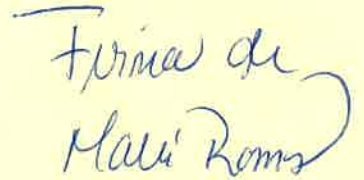 Firma de
Mavi Romo